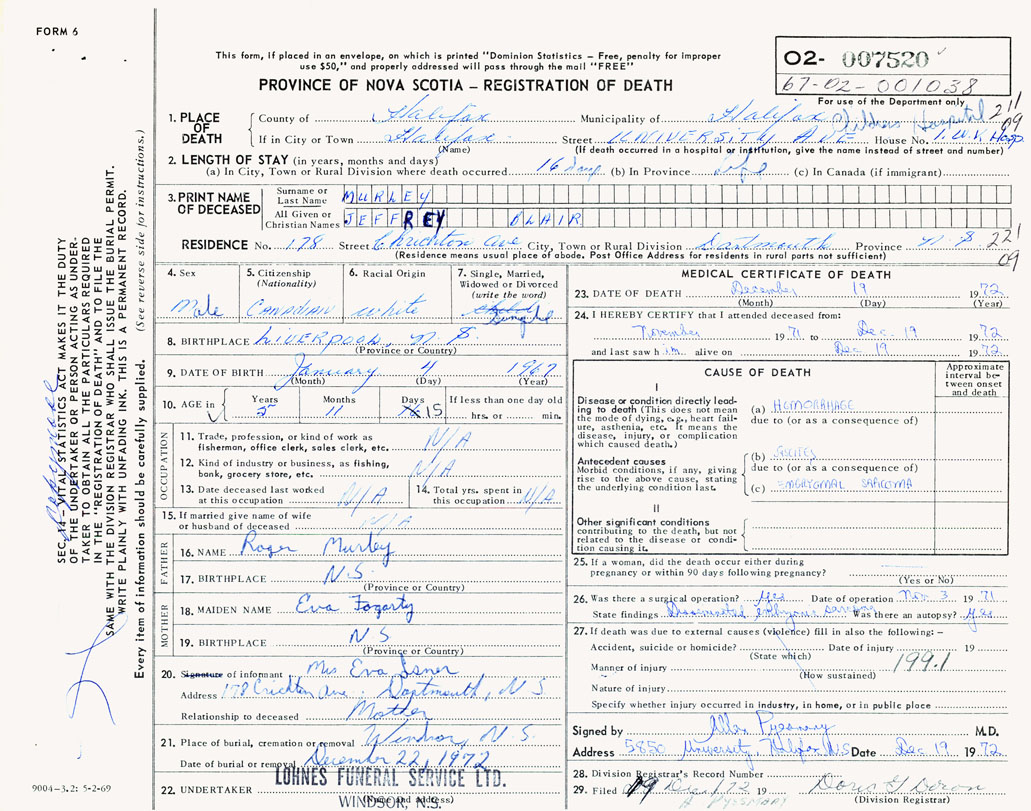 FORM 6
This form, if placed in an envelope, on which is printed "Dominion Statistics – Free, penalty for improper
use $50," and properly addressed will pass through the mail "FREE"
PROVINCE OF NOVA SCOTIA – REGISTRATION OF DEATH
02- 007520
67-02-001038
For use of the Department only
211
09
1. PLACE OF DEATH County of Halifax Municipality of Halifax Childrens Hospital
If in City or Town Halifax Street UNIVERSITY AVE House No. I.W.K. Hosp.
(Name) (If death occurred in a hospital or institution, give the name instead of street and number)
2. LENGTH OF STAY (in years, months and days)
(a) In City, Town or Rural Division where death occurred 16 days (b) In Province Life (c) In Canada (if immigrant)
3. PRINT NAME OF DECEASED Surname or Last Name MURLEY
All Given or Christian Names JEFFREY BLAIR
RESIDENCE No. 178 Street Chrichton Ave City, Town or Rural Division Dartmouth Province N S
221
09
(Residence means usual place of abode. Post Office Address for residents in rural parts not sufficient)
4. Sex Male
5. Citizenship (Nationality) CANADIAN
6. Racial Origin White
7. Single, Married, Widowed or Divorced (write the word) Single
8. BIRTHPLACE LIVERPOOL, N.S.
(Province or Country)
9. DATE OF BIRTH January 4 1967
(Month) (Day) (Year)
10. AGE in Years 5 Months 11 Days 15 If less than one day old hrs. or min.
OCCUPATION
11. Trade, profession, or kind of work as fisherman, office clerk, sales clerk, etc. N/A
12. Kind of industry or business, as fishing, bank, grocery store, etc. N/A
13. Date deceased last worked at this occupation N/A
14. Total yrs. spent in this occupation N/A
15. If married give name of wife or husband of deceased N/A
FATHER
16. NAME Roger Murley
17. BIRTHPLACE N S
(Province or Country)
MOTHER
18. MAIDEN NAME Eva Fogarty
19. BIRTHPLACE N S
(Province or Country)
20. Signature of informant Mrs Eva Isner
Address 178 Crichton Ave. Dartmouth, N S
Relationship to deceased Mother
21. Place of burial, cremation or removal Windsor, N.S.
Date of burial or removal December 22, 1972
22. UNDERTAKER LOHNES FUNERAL SERVICE LTD.
WINDSOR, N.S.
(Name and address)
MEDICAL CERTIFICATE OF DEATH
23. DATE OF DEATH December 19 1972
(Month) (Day) (Year)
24. I HEREBY CERTIFY that I attended deceased from:
November 1971 to Dec. 19 1972
and last saw him alive on Dec 19 1972
CAUSE OF DEATH
Approximate interval between onset and death
I
Disease or condition directly leading to death (This does not mean the mode of dying, e.g., heart failure, asthenia, etc. It means the disease, injury, or complication which caused death.)
(a) HEMORRHAGE
due to (or as a consequence of)
Antecedent causes
Morbid conditions, if any, giving rise to the above cause, stating the underlying condition last.
(b) ASCITES
due to (or as a consequence of)
(c) EMBRYONAL SARCOMA
II
Other significant conditions contributing to the death, but not related to the disease or condition causing it.
25. If a woman, did the death occur either during pregnancy or within 90 days following pregnancy?
(Yes or No)
26. Was there a surgical operation? yes Date of operation Nov 3 1971
State findings Disseminated embryonal sarcoma Was there an autopsy? yes
27. If death was due to external causes (violence) fill in also the following: –
Accident, suicide or homicide? Date of injury 19
(State which)
199.1
Manner of injury
(How sustained)
Nature of injury
Specify whether injury occurred in industry, in home, or in public place
Signed by Allan Pyesmany M.D.
Address 5850 University, Halifax N.S Date Dec 19 1972
28. Division Registrar's Record Number
29. Filed 19 Dec 72 19 Doris
(Division Registrar)
A PYESMANY
9004-3.2: 5-2-69
SEC. 14 – VITAL STATISTICS ACT MAKES IT THE DUTY
OF THE UNDERTAKER OR PERSON ACTING AS UNDER-
TAKER TO OBTAIN ALL THE PARTICULARS REQUIRED
IN THE "REGISTRATION OF DEATH" AND TO FILE THE
SAME WITH THE DIVISION REGISTRAR WHO SHALL ISSUE THE BURIAL PERMIT.
WRITE PLAINLY WITH UNFADING INK. THIS IS A PERMANENT RECORD.
Every item of information should be carefully supplied. (See reverse side for instructions.)